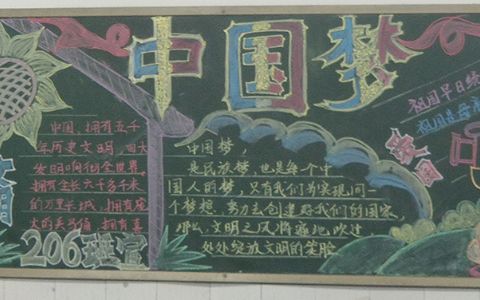 中国梦
中国,拥有五千
年历史文明,四大
发明响彻全世界,
拥有全长六千多千米
的万里长城,拥有庞
大的兵马俑,拥有喜
206班宣
文明
中国梦,
是民族梦,也是每一个中
国人的梦,只有我们为实现同一
个梦想,努力去创建好我们的国家,
那么,文明之风将遍地吹过
处处绽放文明的笑脸
祖国早日终
祖国是母
中